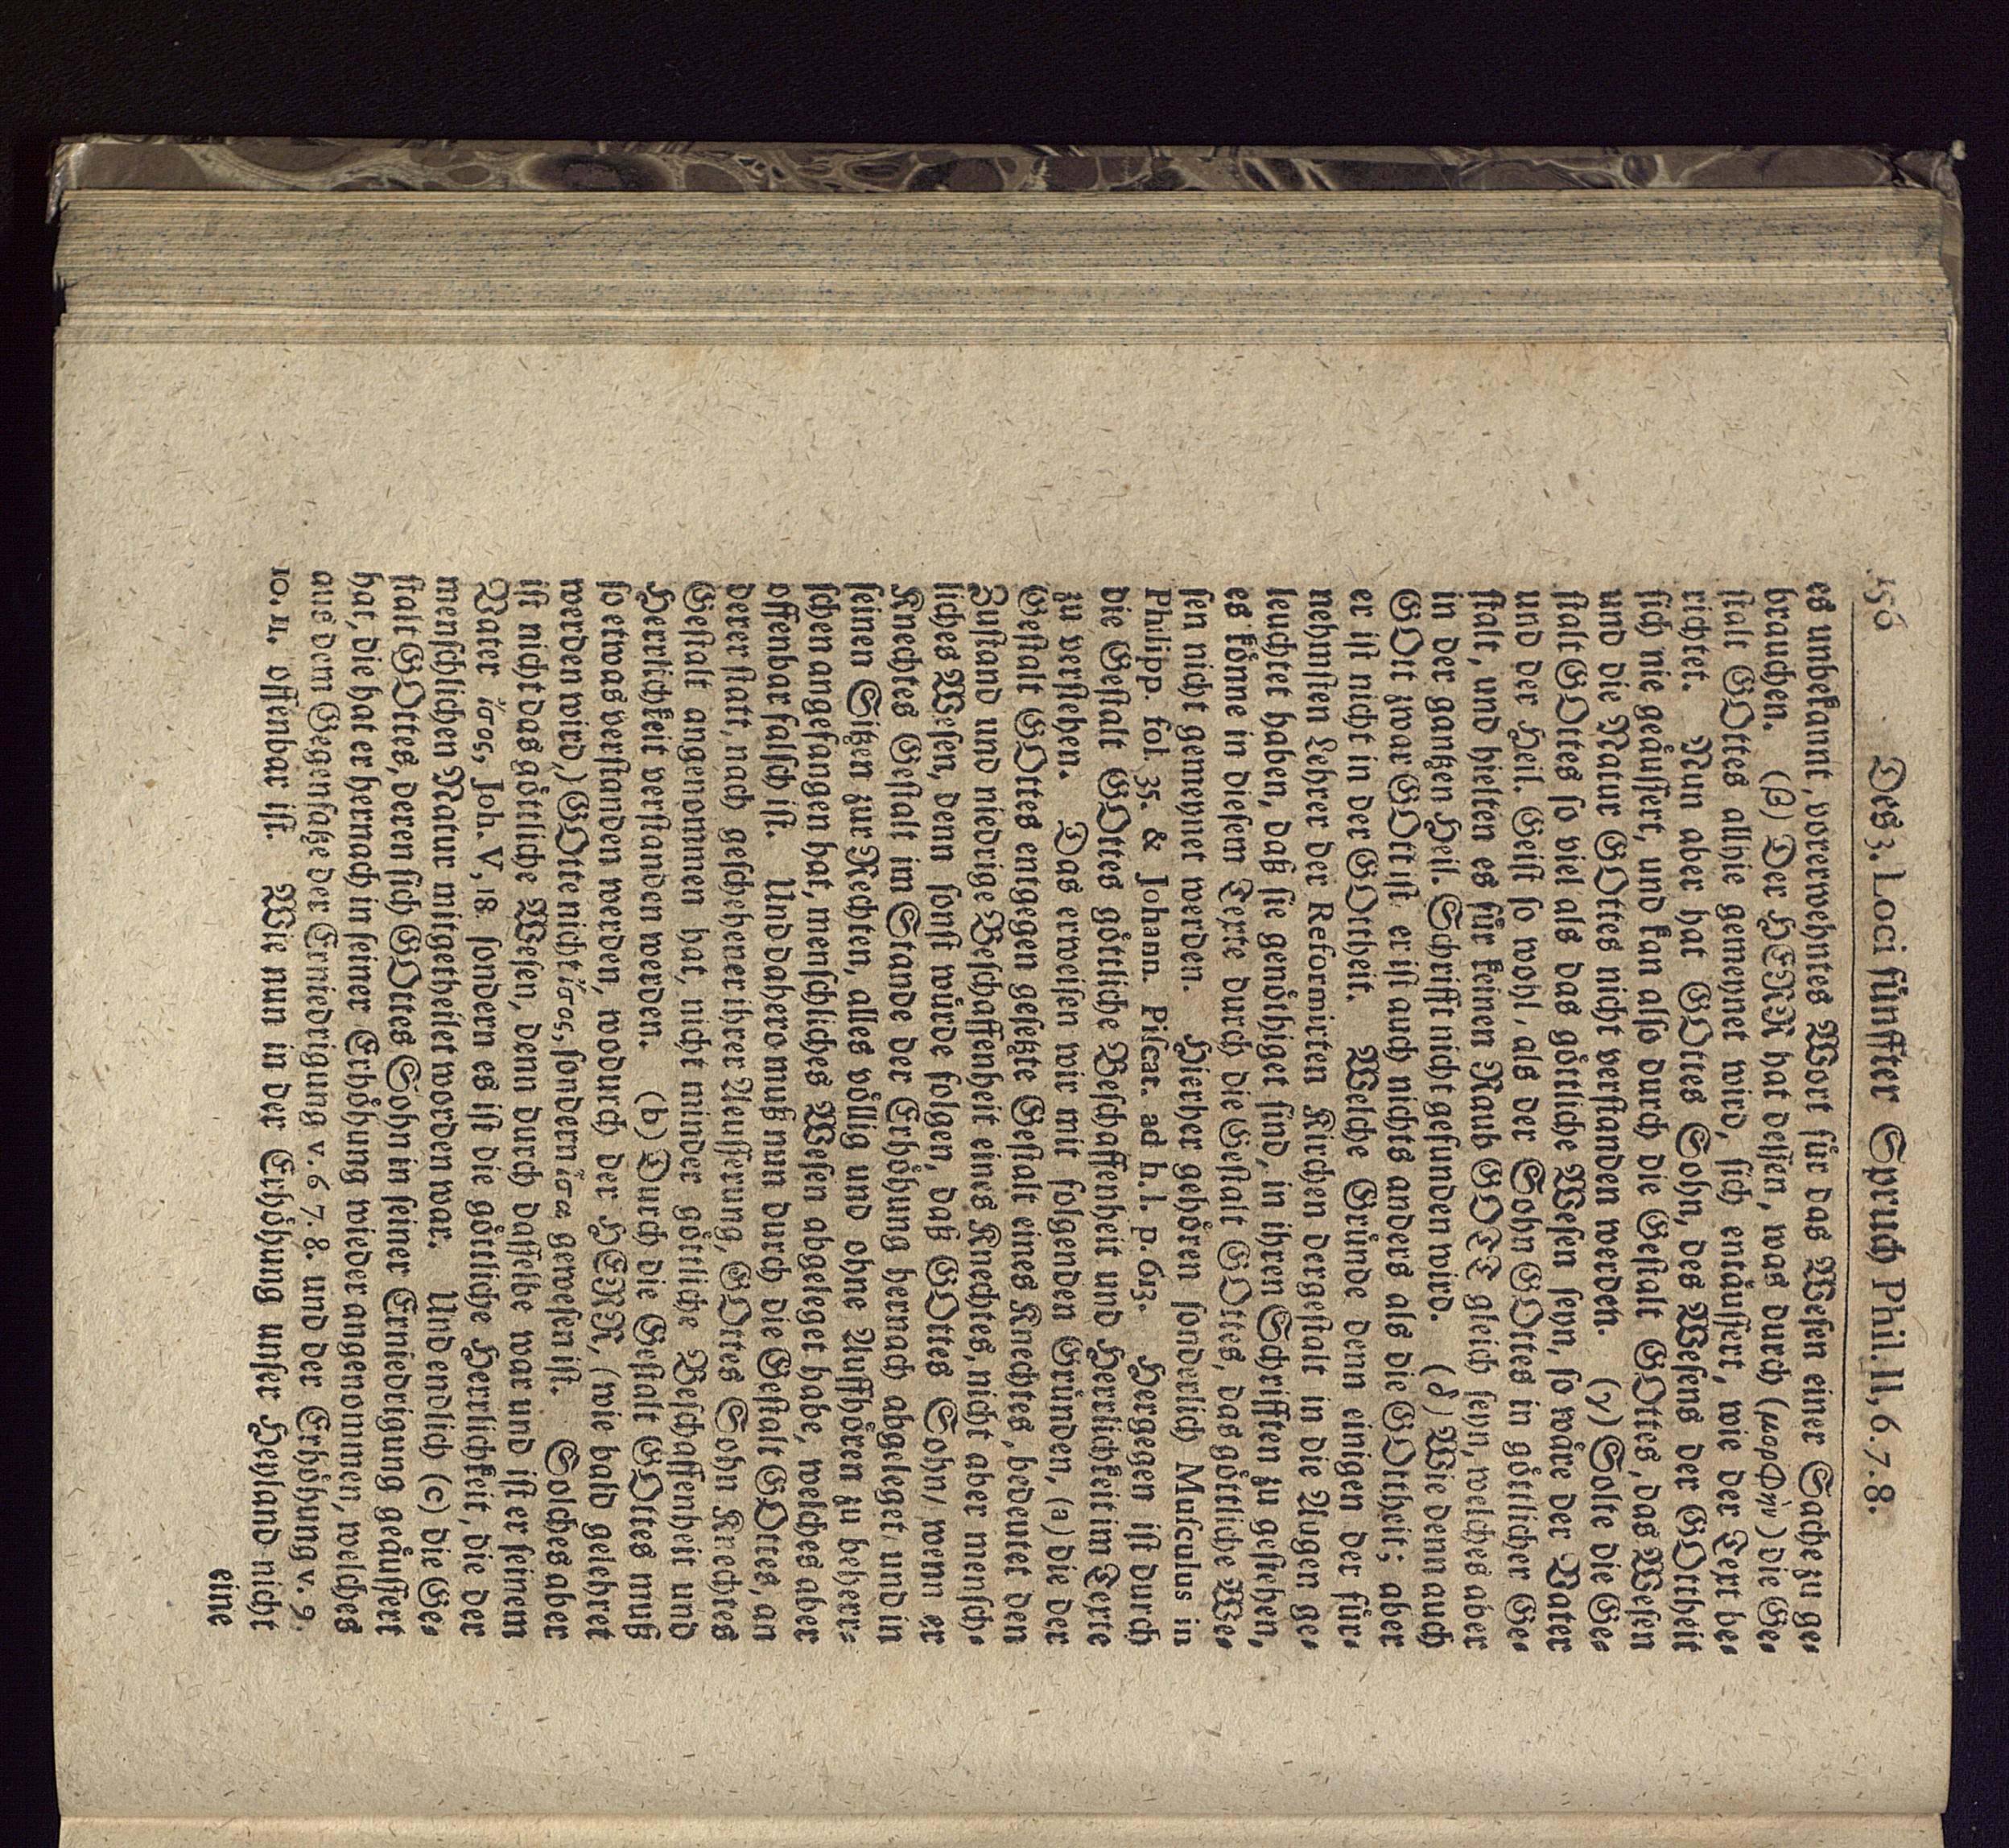 156 Des 3. Loci fünffter Spruch Phil. II, 6. 7. 8.
es unbekannt, vorerwehntes Wort für das Wesen einer Sache zu ge-
brauchen. (β) Der HERR hat dessen, was durch (μορφὴν) die Ge-
stalt GOttes allhie gemeynet wird, sich entäussert, wie der Text be-
richtet. Nun aber hat GOttes Sohn, des Wesens der GOttheit
sich nie geäussert, und kan also durch die Gestalt GOttes, das Wesen
und die Natur GOttes nicht verstanden werden. (γ) Solte die Ge-
stalt GOttes so viel als das göttliche Wesen seyn, so wäre der Vater
und der Heil. Geist so wohl, als der Sohn GOttes in göttlicher Ge-
stalt, und hielten es für keinen Raub GOTT gleich seyn, welches aber
in der gantzen Heil. Schrifft nicht gefunden wird. (δ) Wie denn auch
GOtt zwar GOtt ist, er ist auch nichts anders als die GOttheit; aber
er ist nicht in der GOttheit. Welche Gründe denn einigen der für-
nehmsten Lehrer der Reformirten Kirchen dergestalt in die Augen ge-
leuchtet haben, daß sie genöthiget sind, in ihren Schrifften zu gestehen,
es könne in diesem Texte durch die Gestalt GOttes, das göttliche We-
sen nicht gemeynet werden. Hierher gehören sonderlich Musculus in
Philipp. fol. 35. & Johann. Piscat. ad h. l. p. 613. Hergegen ist durch
die Gestalt GOttes göttliche Beschaffenheit und Herrlichkeit im Texte
zu verstehen. Das erweisen wir mit folgenden Gründen, (a) die der
Gestalt GOttes entgegen gesetzte Gestalt eines Knechtes, bedeutet den
Zustand und niedrige Beschaffenheit eines Knechtes, nicht aber mensch-
liches Wesen, denn sonst würde folgen, daß GOttes Sohn/ wenn er
Knechtes Gestalt im Stande der Erhöhung hernach abgeleget/ und in
seinen Sitzen zur Rechten, alles völlig und ohne Auffhören zu beherr-
schen angefangen hat, menschliches Wesen abgeleget habe, welches aber
offenbar falsch ist. Und dahero muß nun durch die Gestalt GOttes, an
derer statt, nach geschehener ihrer Aeusserung, GOttes Sohn Knechtes
Gestalt angenommen hat, nicht minder göttliche Beschaffenheit und
Herrlichkeit verstanden werden. (b) Durch die Gestalt GOttes muß
so etwas verstanden werden, wodurch der HERR, (wie bald gelehret
werden wird,) GOtte nicht ἴσος, sondern ἴσα gewesen ist. Solches aber
ist nicht das göttliche Wesen, denn durch dasselbe war und ist er seinem
Vater ἴσος, Joh. V, 18. sondern es ist die göttliche Herrlichkeit, die der
menschlichen Natur mitgetheilet worden war. Und endlich (c) die Ge-
stalt GOttes, deren sich GOttes Sohn in seiner Erniedrigung geäussert
hat, die hat er hernach in seiner Erhöhung wieder angenommen, welches
aus dem Gegensatze der Erniedrigung v. 6 7. 8. und der Erhöhung v. 9.
10. 11. offenbar ist. Wie nun in der Erhöhung unser Heyland nicht
eine